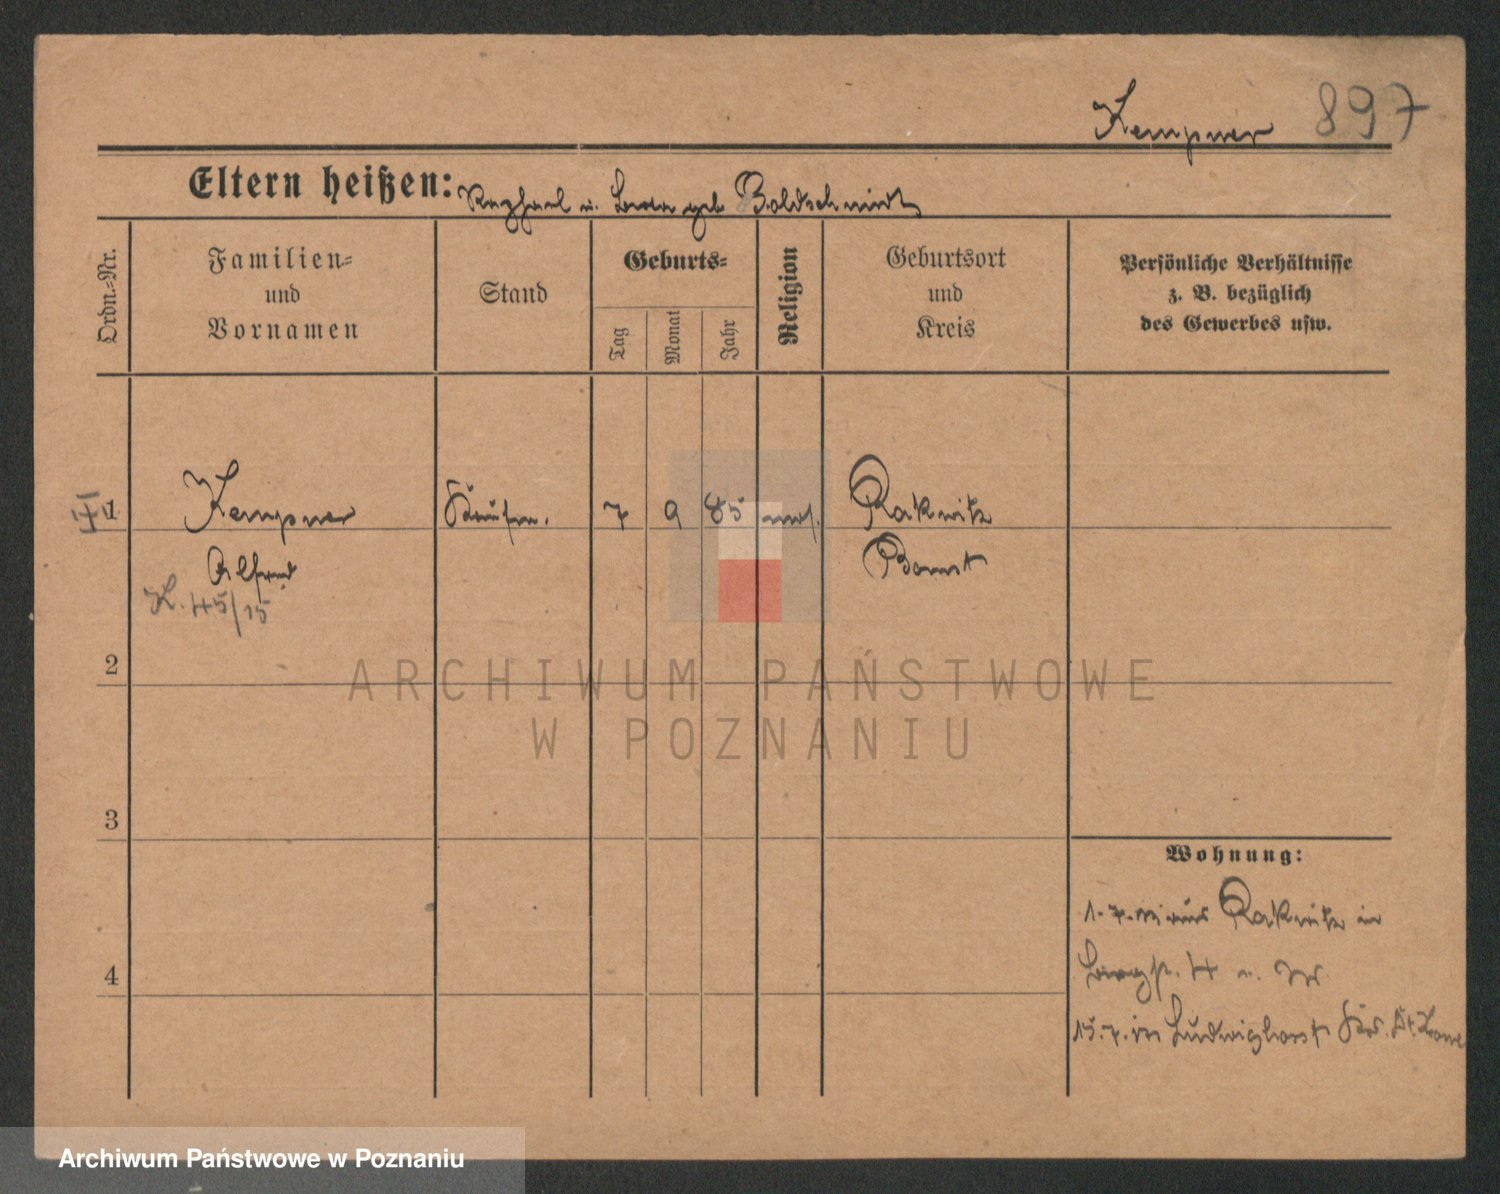 Kempner 897
Eltern heißen: Raphael u. geb Goldschmidt
Ordn.=Nr.
Familien=
und
Vornamen
Stand
Geburts=
Tag
Monat
Jahr
Religion
Geburtsort
und
Kreis
Persönliche Verhältnisse
z. B. bezüglich
des Gewerbes usw.
1 Kempner Kaufm. 7 9 85 mos. Rakwitz
Alfred Bomst
K. 45/15
2
3
4
Wohnung:
1.7. aus Rakwitz in
4 u.
15.7. in Ludwigshorst Krs. Dt. Krone
ARCHIWUM PAŃSTWOWE
W POZNANIU
Archiwum Państwowe w Poznaniu